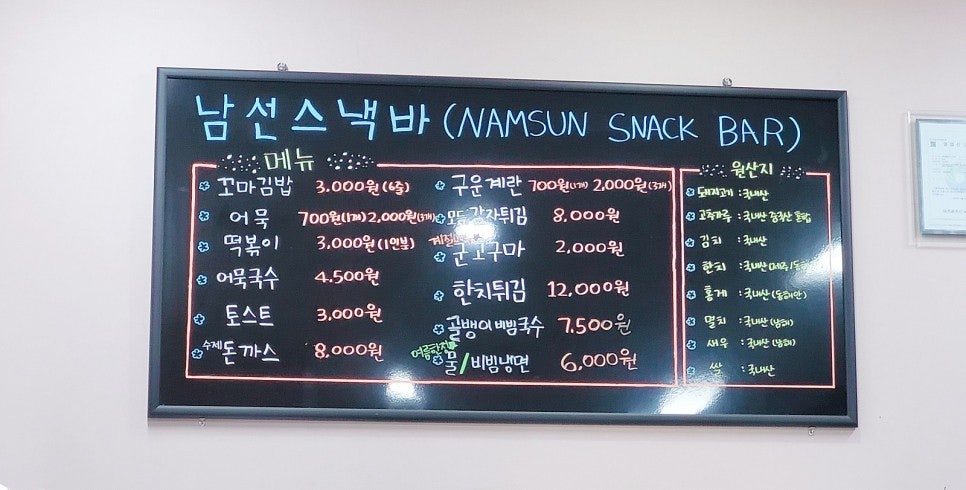 남선스낵바 (NAMSUN SNACK BAR)
메뉴
꼬마김밥 3.000원 (6줄)
어묵 700원(1개) 2,000원(3개)
떡볶이 3,000원 (1인분)
어묵국수 4.500원
토스트 3,000원
수제 돈까스 8,000원
구운계란 700원(1개) 2,000원(3개)
모듬감자튀김 8.000원
군고구마 2,000원
한치튀김 12,000원
골뱅이비빔국수 7.500원
여름한정
물/비빔냉면 6,000원
원산지
돼지고기 : 국내산
고추가루 : 국내산 중국산 혼합
김치 : 국내산
한치 : 국내산
홍게 : 국내산 (동해안)
멸치 : 국내산 (남해)
새우 : 국내산 (남해)
쌀 : 국내산